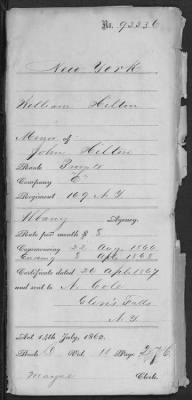 No. 92236
New York
William Hilton
Minor of
John Hilton
Rank Priv't
Company "E"
Regiment 169 N.Y.
Albany Agency.
Rate per month $ 8
Commencing 22 Aug 1866
Ending 8 Apl 1868
Certificate dated 20 Apl 1867
and sent to A. Cole
Glen's Falls
N.Y.
Act 14th July, 1862.
Book B Vol. H Page 276
Clerk.